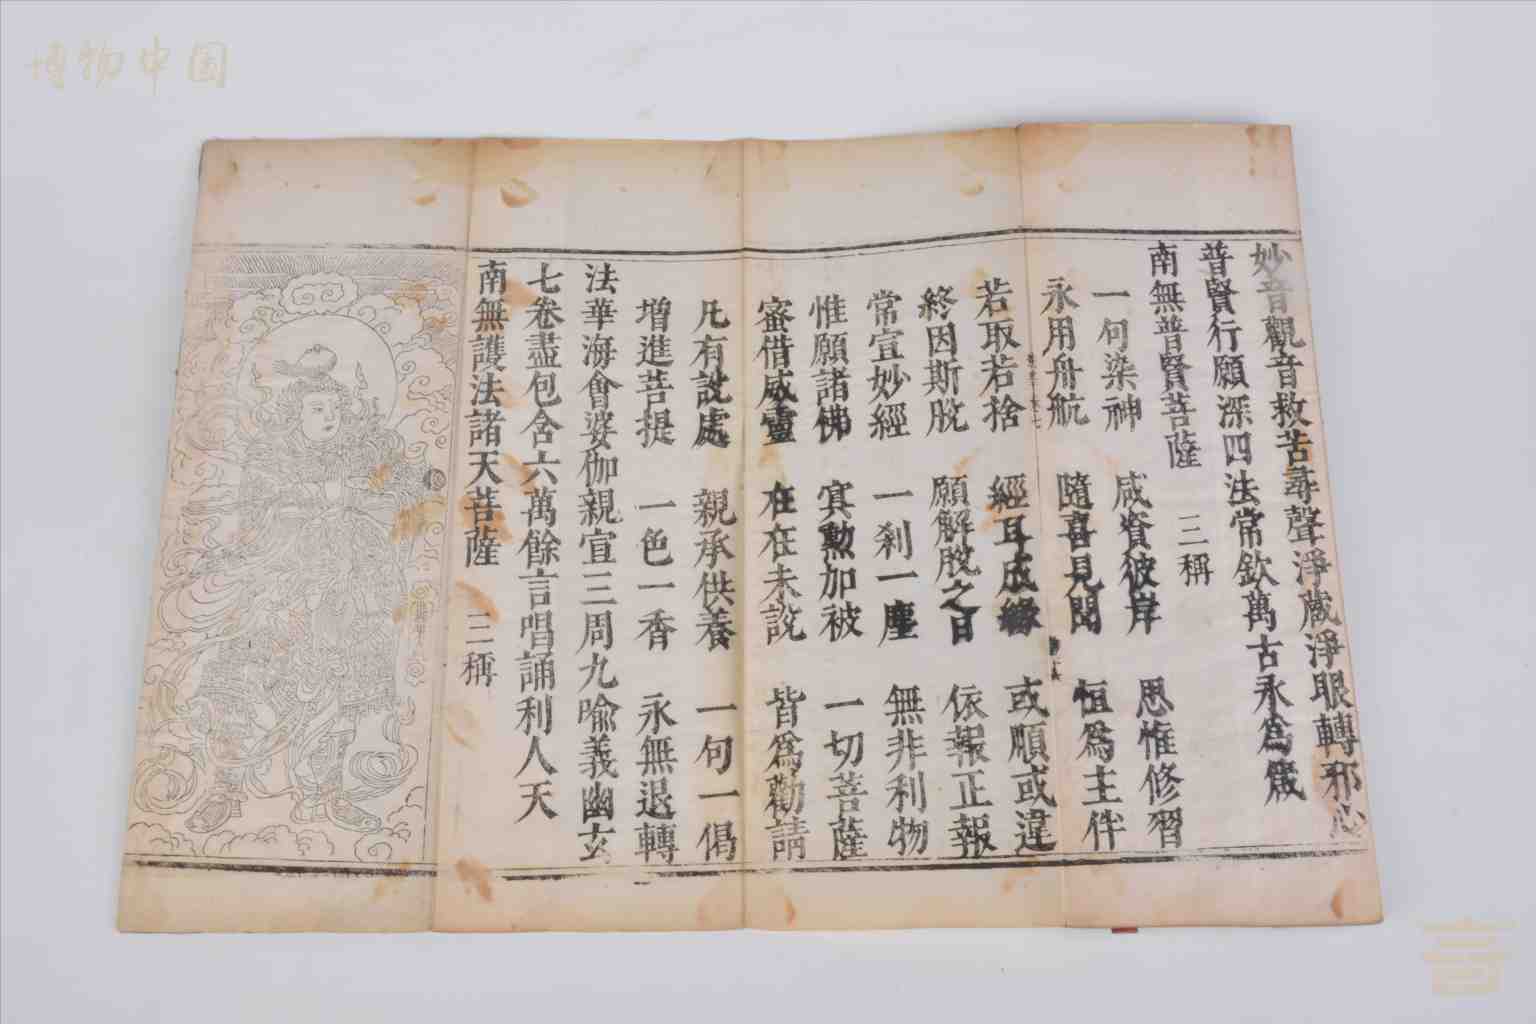 博物中国
妙音觀音救苦尋聲淨藏淨眼轉邪心
普賢行願深四法常欽萬古永為箴
南無普賢菩薩 三稱
一句染神 咸資彼岸 思惟修習
永用舟航 隨喜見聞 恒為主伴
若取若捨 經耳成緣 或順或違
終因斯脫 願解脫之日 依報正報
常宣妙經 一刹一塵 無非利物
惟願諸佛 冥勲加被 一切菩薩
密借威靈 在在未說 皆為勸請
凡有說處 親承供養 一句一偈
增進菩提 一色一香 永無退轉
法華海會婆伽親宣三周九喻義幽玄
七卷盡包含六萬餘言唱誦利人天
南無護法諸天菩薩 三稱